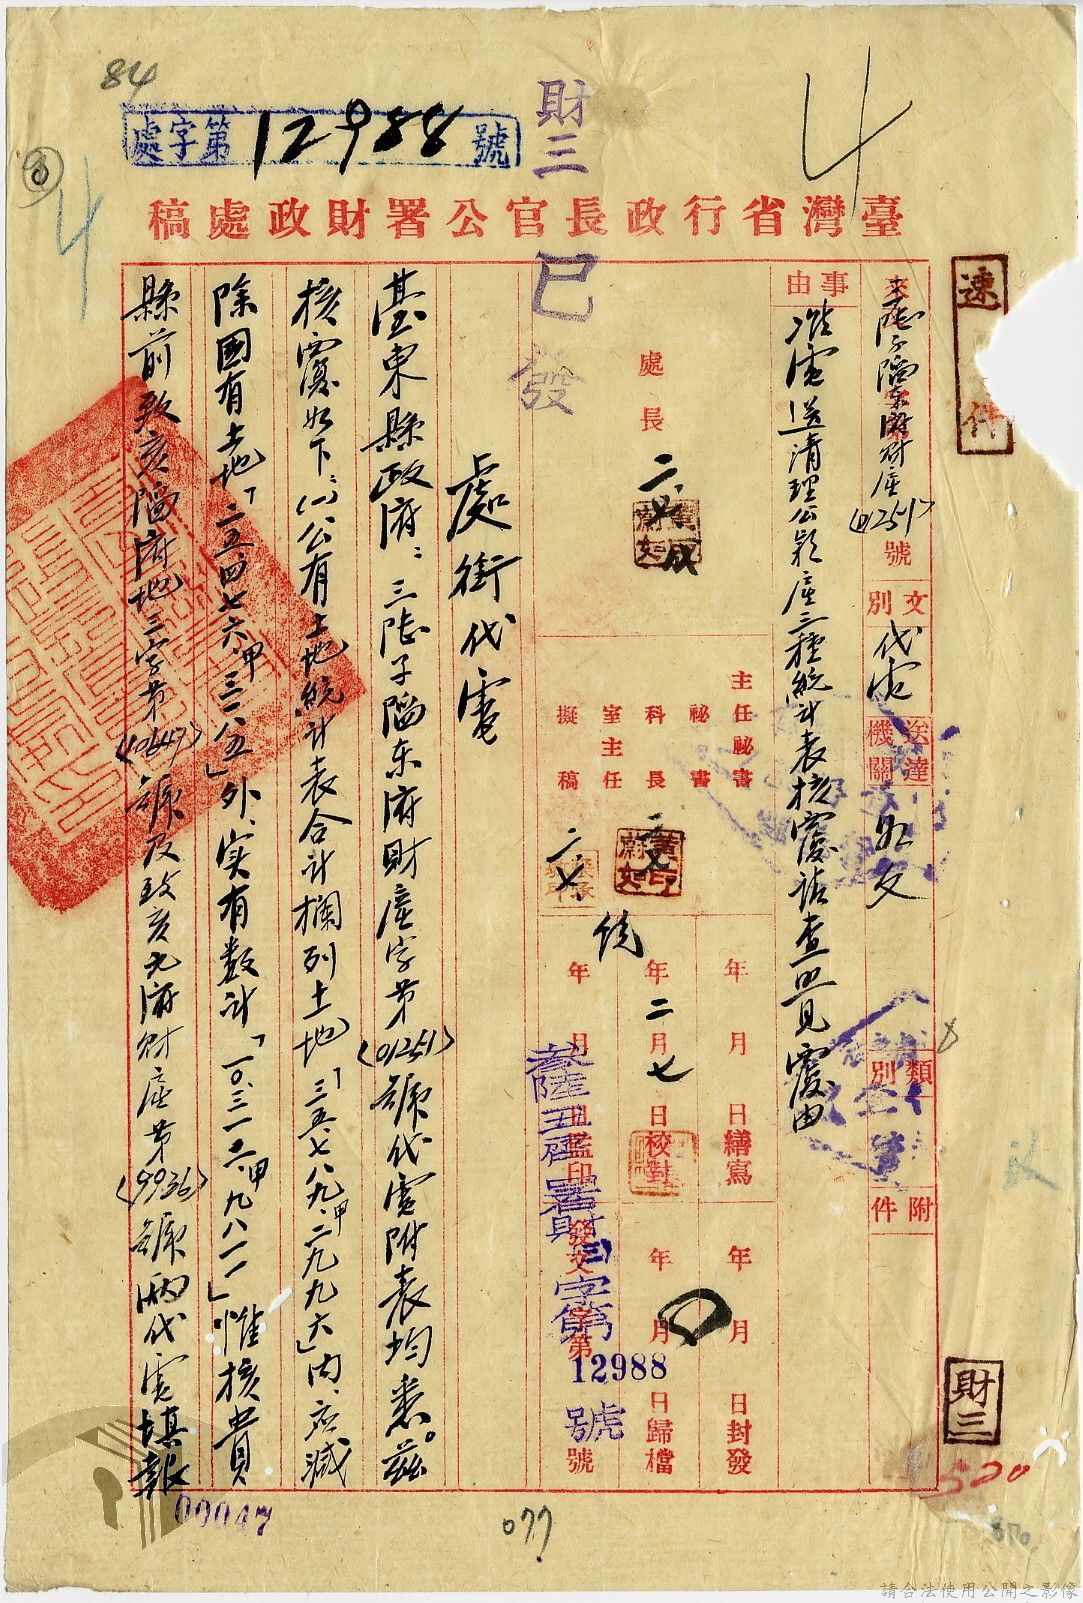 84
4
財三
處字第12988號
4
臺灣省行政長官公署財政處稿
速
件
來
字第01251號
文別 代電
送達機關 如文
類別
附件
事由
准電送清理公有款產三種統計表核覆請查照見覆由
處長
主任秘書
秘書
科長
室主任
擬稿
二、七
已發
年 月 日繕寫
年 月 日封發
年二月七日校對
年 月 日歸檔
年 月 日監印
發文 字第 號
署財三字第12988號
處銜代電
臺東縣政府：三陸子陷東府財產字第(01251)號代電附表均悉。茲
核覆如下：㈠公有土地統計表合計欄列土地「三五、七八九甲二九九六」內，應減
除國有土地「二五、四七六甲三一八五」外，实有数計「一〇、三一二甲九八一一」惟核貴
縣前致亥陷府地三字第(40647)號及致亥元府財產第(9936)號兩代電填報
財三
520
00047
077
870
請合法使用公開之影像